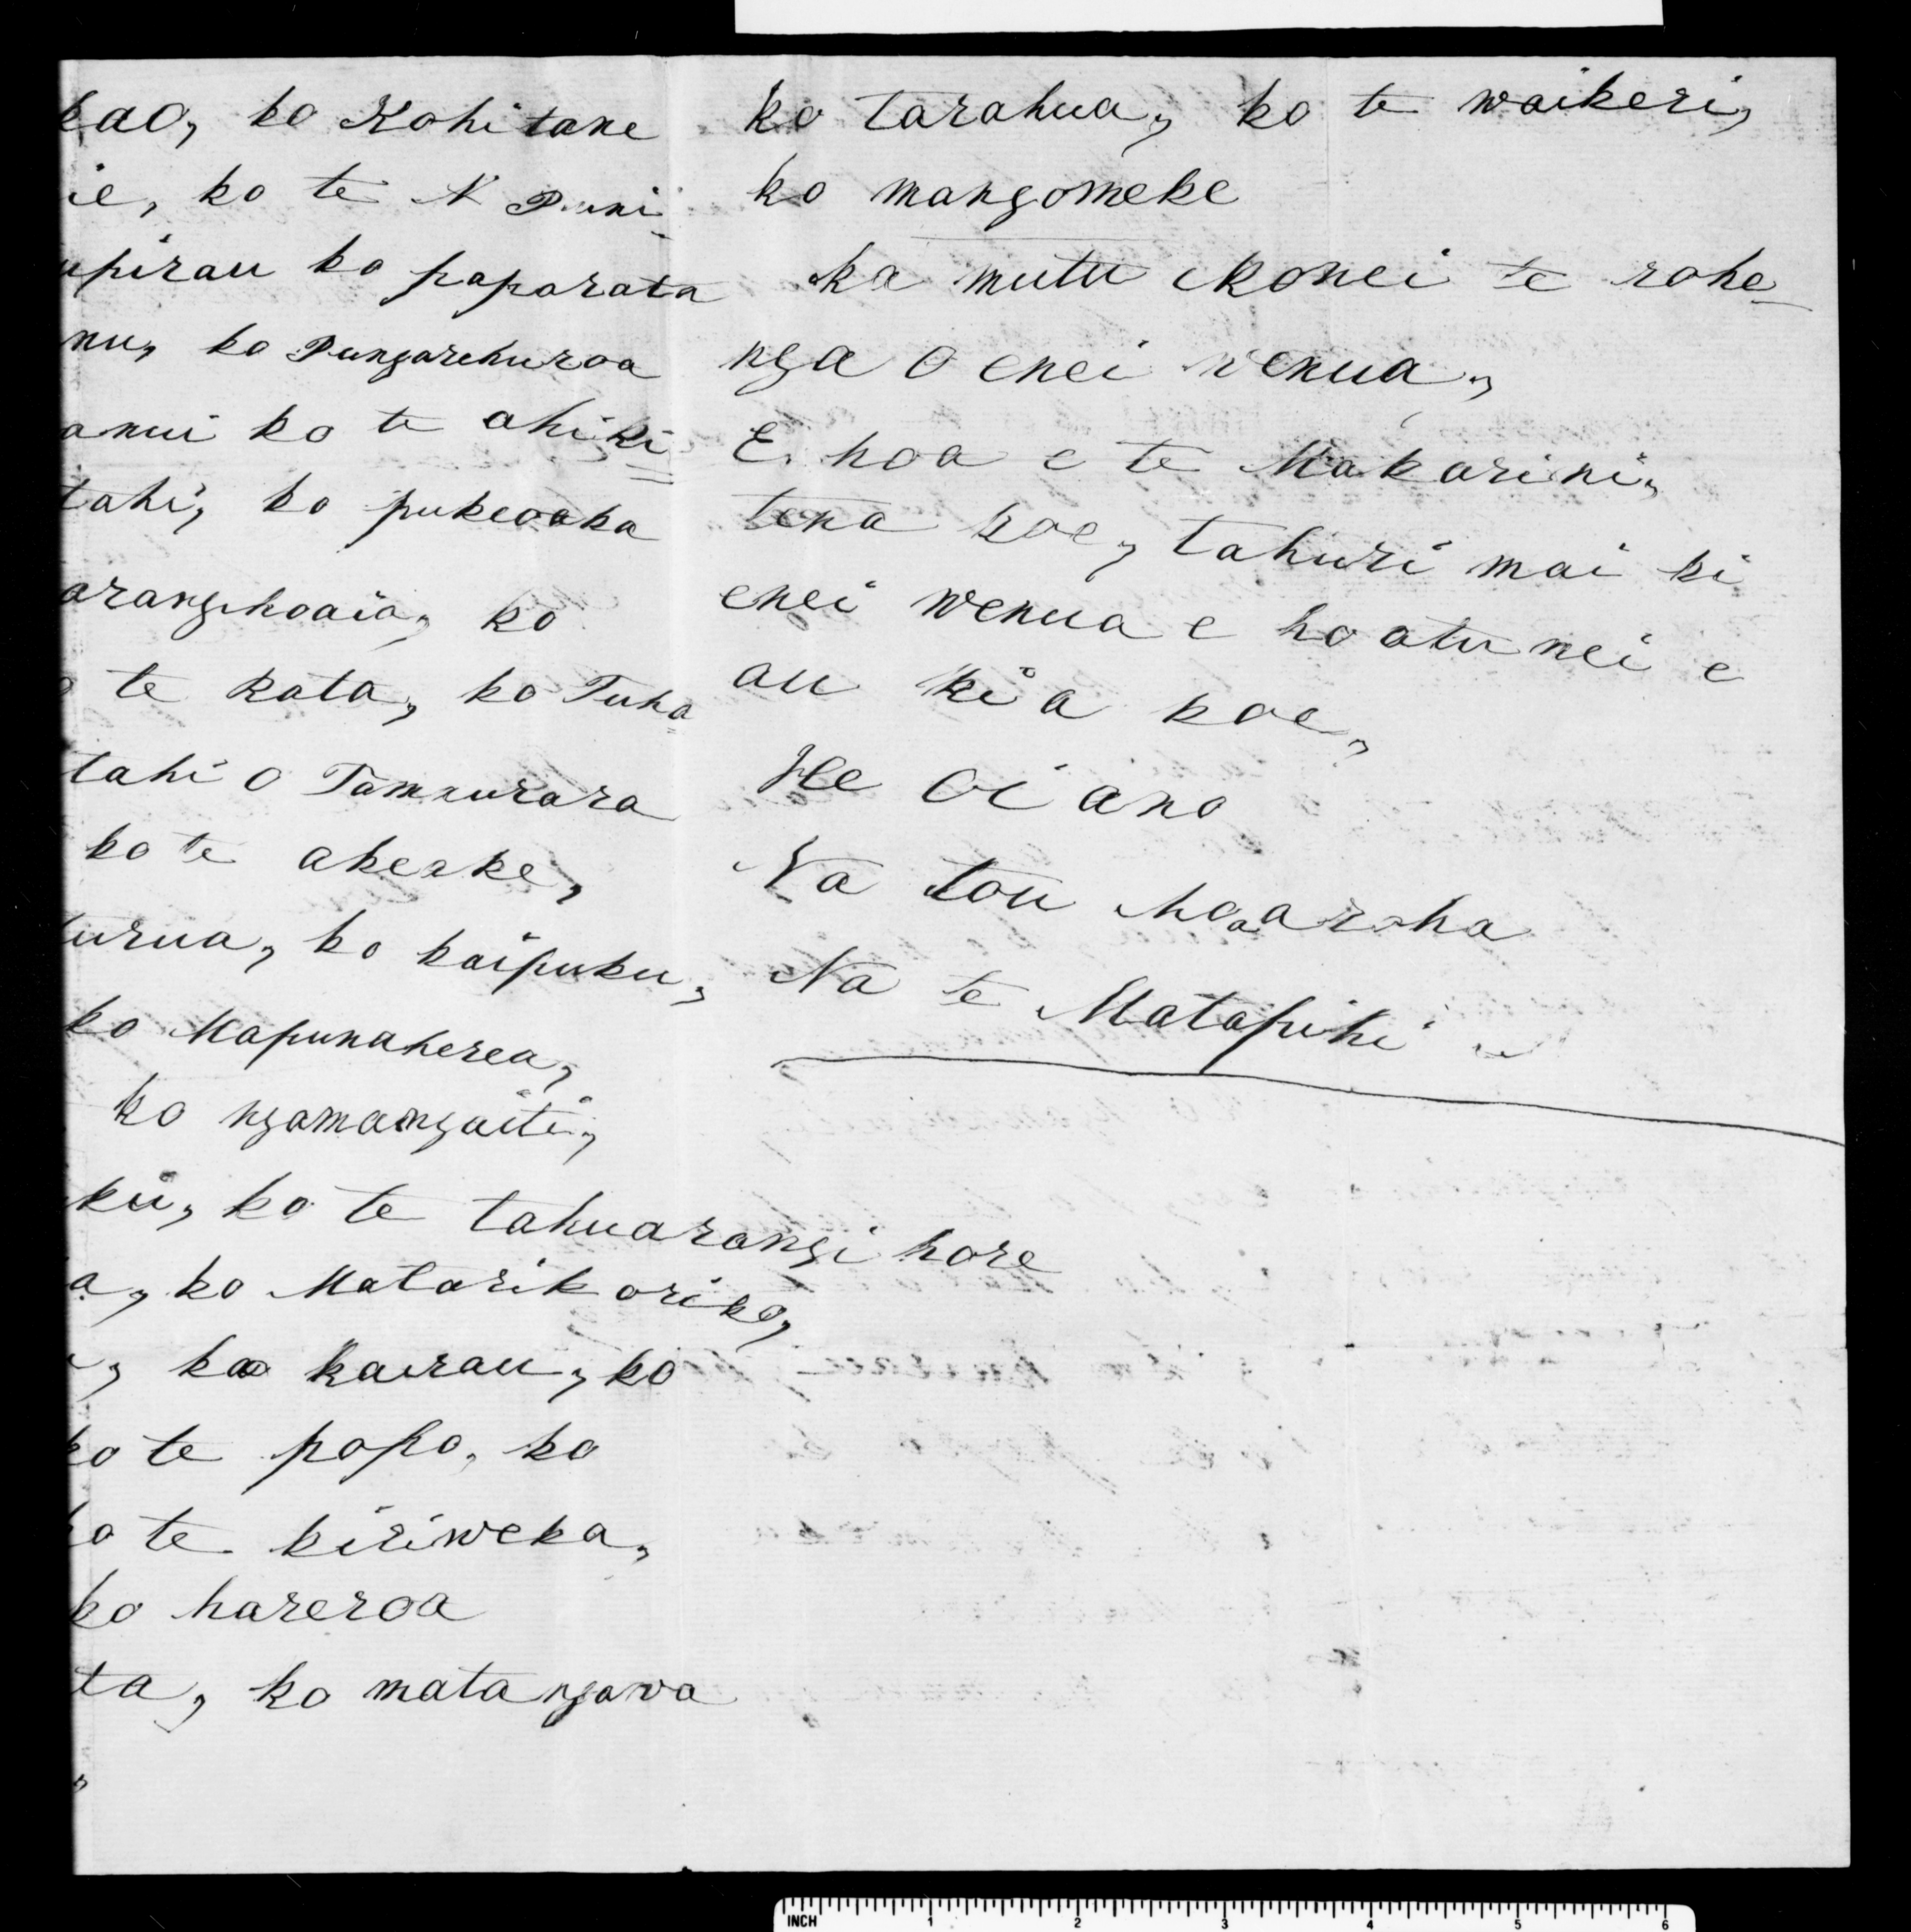 kao, ko Kohitane
ie, ko te N Puni
upirau ko paparata
nu, ko Pungarehuroa
anui ko te ahiki=
tahi, ko pukeoaka
arangihoaia, ko
te Rata, ko Tuha=
tahi o Tamaurara
ko te akeake,
turua, ko kaipuku,
ko Mapunaherea,
ko ngamangaiti,
ku, ko te tahuarangi hore
a, ko Matarikoriko,
ko kairau, ko
ko te popo, ko
ko te kiriweka,
ko hareroa
ta, ko matangawa
ko tarahua, ko te waikeri,
ko mangomeke
ka mutu ikonei te rohe_
nga o enei wenua,
E hoa e te Makarini,
tena koe, tahuri mai ki
enei wenua e hoatu nei e
au ki a koe,
He oi ano
Na tou hoa aroha
Na te Matapihi
INCH 1 2 3 4 5 6